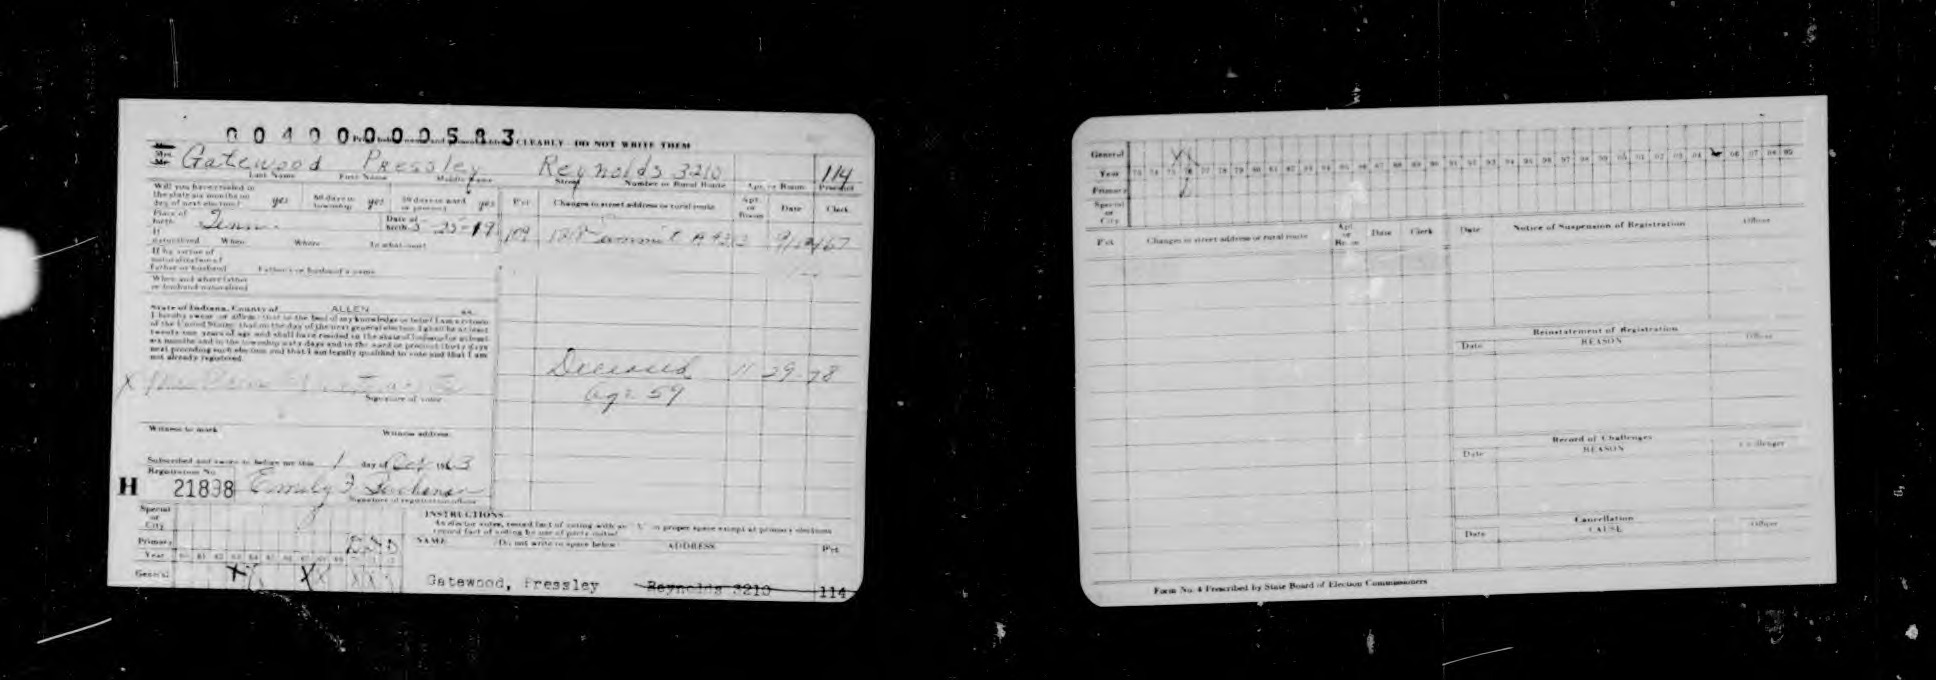 00400000583 CLEARLY - DO NOT WRITE THEM
Gatewood Pressley Reynolds 3210 114
Last Name First Name Middle Name Street Number or Rural Route Apt. or Room Precinct
Will you have resided in the state six months on day of next election? yes 60 days in township yes 30 days in ward or precinct yes Pct Changes in street address or rural route Apt. or Room Date Clerk
Place of birth Tenn. Date of birth 5-25-19
If naturalized When Where In what court
If by virtue of naturalization of Father or husband Father's or husband's name
When and where father or husband naturalized
State of Indiana, County of ALLEN ss.
I hereby swear or affirm that to the best of my knowledge or belief I am a citizen
of the United States; that on the day of the next general election I shall be at least
twenty-one years of age and shall have resided in the state of Indiana for at least
six months and in the township sixty days and in the ward or precinct thirty days
next preceding such election and that I am legally qualified to vote and that I am
not already registered.
Deceased 11 29-78
age 59
X
Signature of voter
Witness to mark Witness address
Subscribed and sworn to before me this 1 day of Oct 1963
Registration No.
H 21898 Emily F.
Signature of registration officer
Special or City
Primary
Year
General
INSTRUCTIONS
As elector votes, record fact of voting with an "X" in proper space except at primary elections
record fact of voting by use of party initial
NAME (Do not write in space below) ADDRESS Pct
Gatewood, Pressley Reynolds 3210 114
General
Year 73 74 75 76 77 78 79 80 81 82 83 84 85 86 87 88 89 90 91 92 93 94 95 96 97 98 99 00 01 02 03 04 06 07 08 09
Primary
Special or City
Pct Changes in street address or rural route Apt. or Room Date Clerk
Date Notice of Suspension of Registration Officer
Reinstatement of Registration
Date REASON Officer
Record of Challenges
Date REASON Challenger
Cancellation
Date CAUSE Officer
Form No. 4 Prescribed by State Board of Election Commissioners